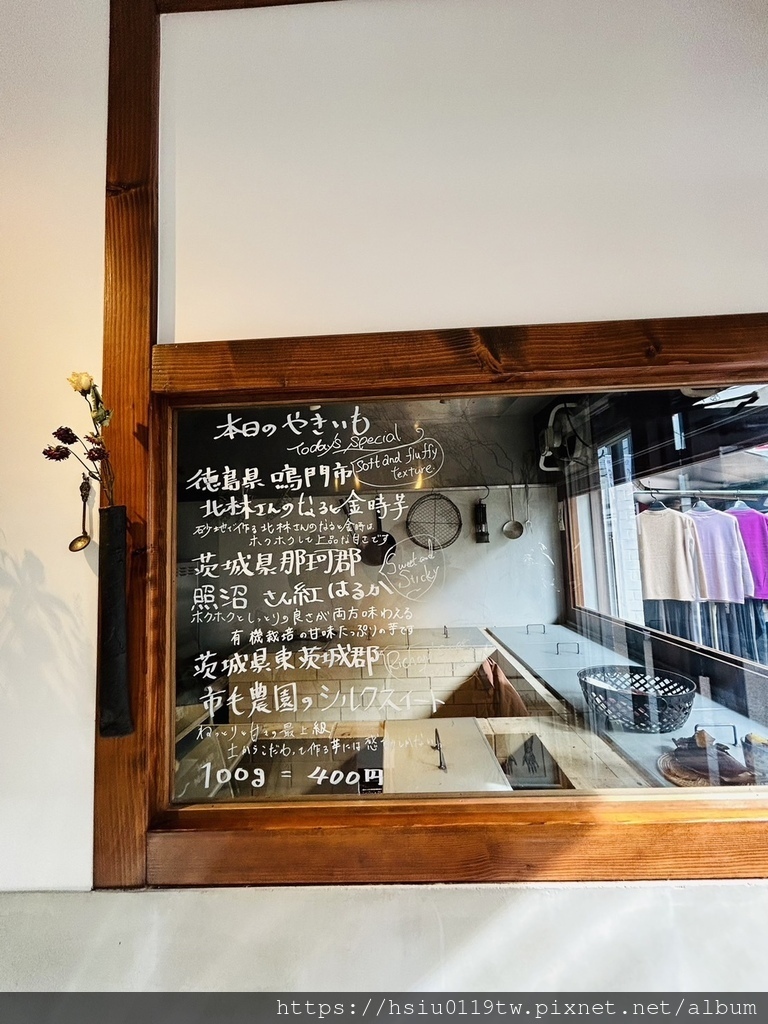 本日のやきいも
Today's special
徳島県 鳴門市
Soft and fluffy
texture
北林さんのなると金時芋
砂地で作る北林さんのなると金時は
ホクホクして上品な甘さです
茨城県那珂郡
Sweet and
Sticky
照沼 さん紅はるか
ホクホクとしっとりの良さが両方味わえる
有機栽培の甘味たっぷりの芋です
茨城県東茨城郡
市毛農園のシルクスイート
ねっとり甘さの最上級
土からこだわって作る芋には
100g = 400円
https://hsiu0119tw.pixnet.net/album